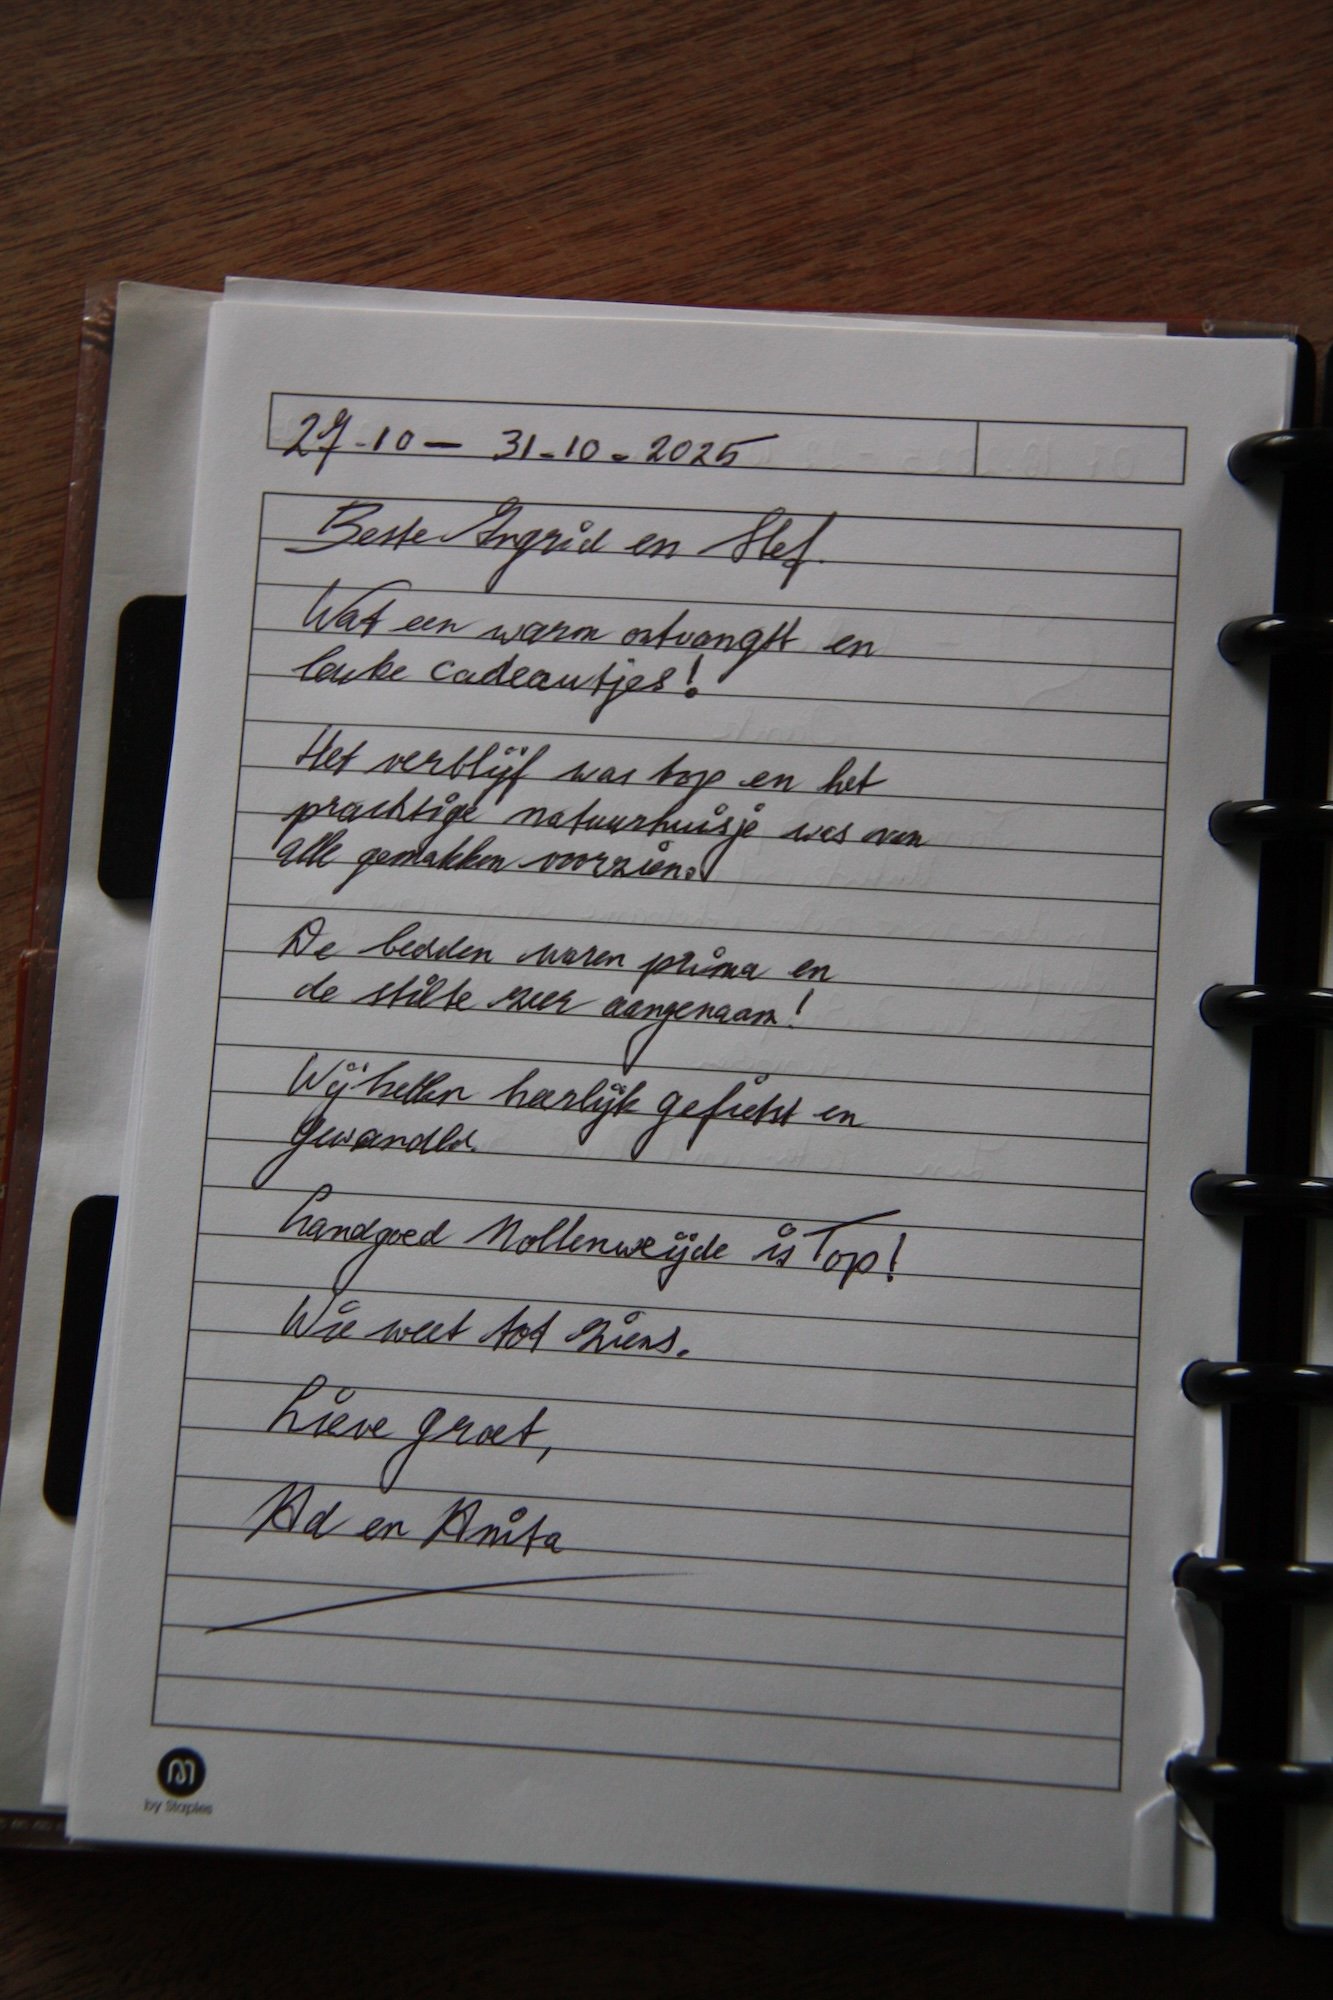 27-10 - 31-10-2025
Beste Ingrid en Stef.
Wat een warm ontvangst en
leuke cadeautjes!
Het verblijf was top en het
prachtige natuurhuisje was van
alle gemakken voorzien.
De bedden waren prima en
de stilte zeer aangenaam!
Wij hebben heerlijk gefietst en
gewandeld.
Landgoed Mollenweijde is Top!
Wie weet tot ziens.
Lieve groet,
Ad en Anita
by Staples